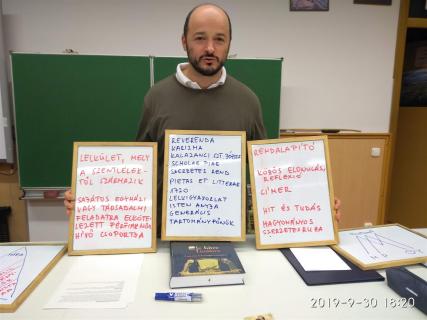 LELKÜLET, MELY
A SZENTLÉLEK-
TŐL SZÁRMAZIK
SAJÁTOS EGYHÁZI
VAGY TÁRSADALMI
FELADATRA ELKÖTE-
LEZETT FÉRFIAK
HÍVŐ CSOPORTJA
REVERENDA
KARIZMA
KALAZANCI SZT. JÓZSEF
SCHOLAE PIAE
SZERZETES REND
PIETAS ET LITTERAE
1720
LELKIGYAKORLAT
ISTEN ANYJA
GENERÁLIS
TARTOMÁNYFŐNÖK
RENDALAPÍTÓ
KÖZÖS ELVONULÁS,
REFLEXIÓ
CÍMER
HIT ÉS TUDÁS
HAGYOMÁNYOS
SZERZETESRUHA
2019-9-30 18:20